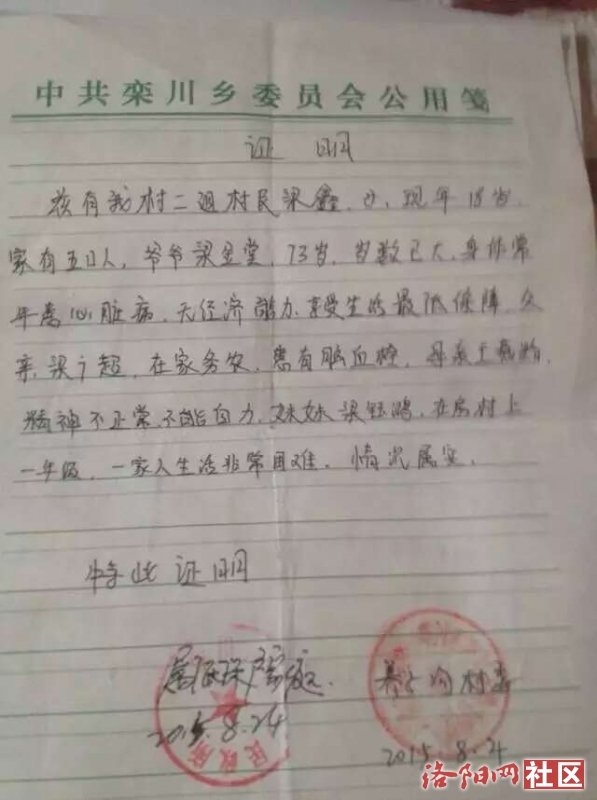 中共栾川乡委员会公用笺
证 明
兹有我村二迴村民梁鑫,女,现年18岁,
家有五口人,爷爷梁生堂,73岁,岁数已大,身体常
年患心脏病,无经济能力,享受生活最低保障,父
亲梁广超,在家务农,患有脑血栓,母亲王
精神不正常,不能自力,妹妹梁钰鸿,在后村上
一年级,一家人生活非常困难,情况属实,
特此证明
属低保户家庭 村委
2015.8.24 2015.8.24
民政所
洛阳网社区